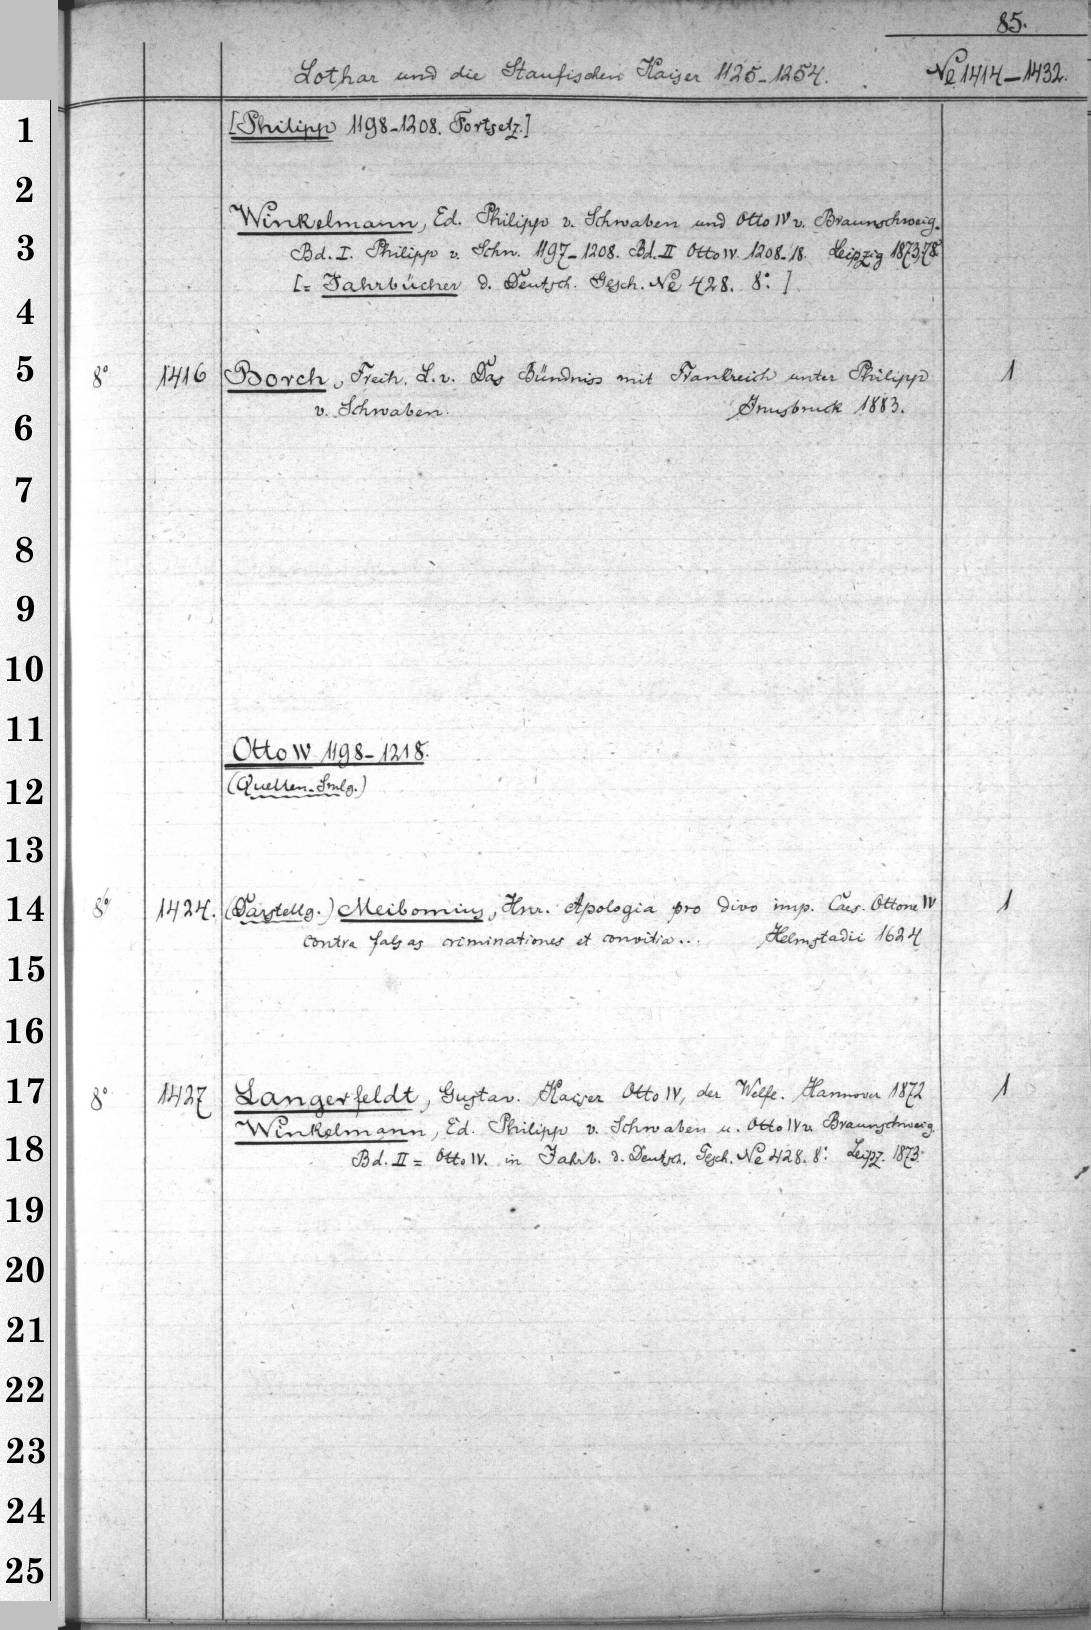 85.
Lothar und die Staufischen Kaiser 1125-1254. № 1414-1432.
1
[Philipp 1198-1208. Fortsetz.]
2
Winkelmann, Ed. Philipp v. Schwaben und Otto IV v. Braunschweig.
3
Bd. I. Philipp v. Schw. 1197-1208. Bd. II Otto IV. 1208-18. Leipzig 1873.78.
[= Jahrbücher d. Deutsch. Gesch. № 428. 8°. ]
4
5
8° 1416 Borch, Freih. L. v. Das Bündniss mit Frankreich unter Philipp 1
v. Schwaben. Innsbruck 1883.
6
7
8
9
10
11
Otto IV 1198-1218.
12
(Quellen-Smlg.)
13
14
8° 1424. (Darstellg.) Meibomius, Hnr. Apologia pro divo imp. Caes. Ottone IV 1
contra falsas criminationes et convitia... Helmstadii 1624
15
16
17
8° 1427 Langerfeldt, Gustav. Kaiser Otto IV, der Welfe. Hannover 1872 1
Winkelmann, Ed. Philipp v. Schwaben u. Otto IV v. Braunschweig
18
Bd. II = Otto IV. in Jahrb. d. Deutsch. Gesch. № 428. 8°. Leipz. 1873.
19
20
21
22
23
24
25